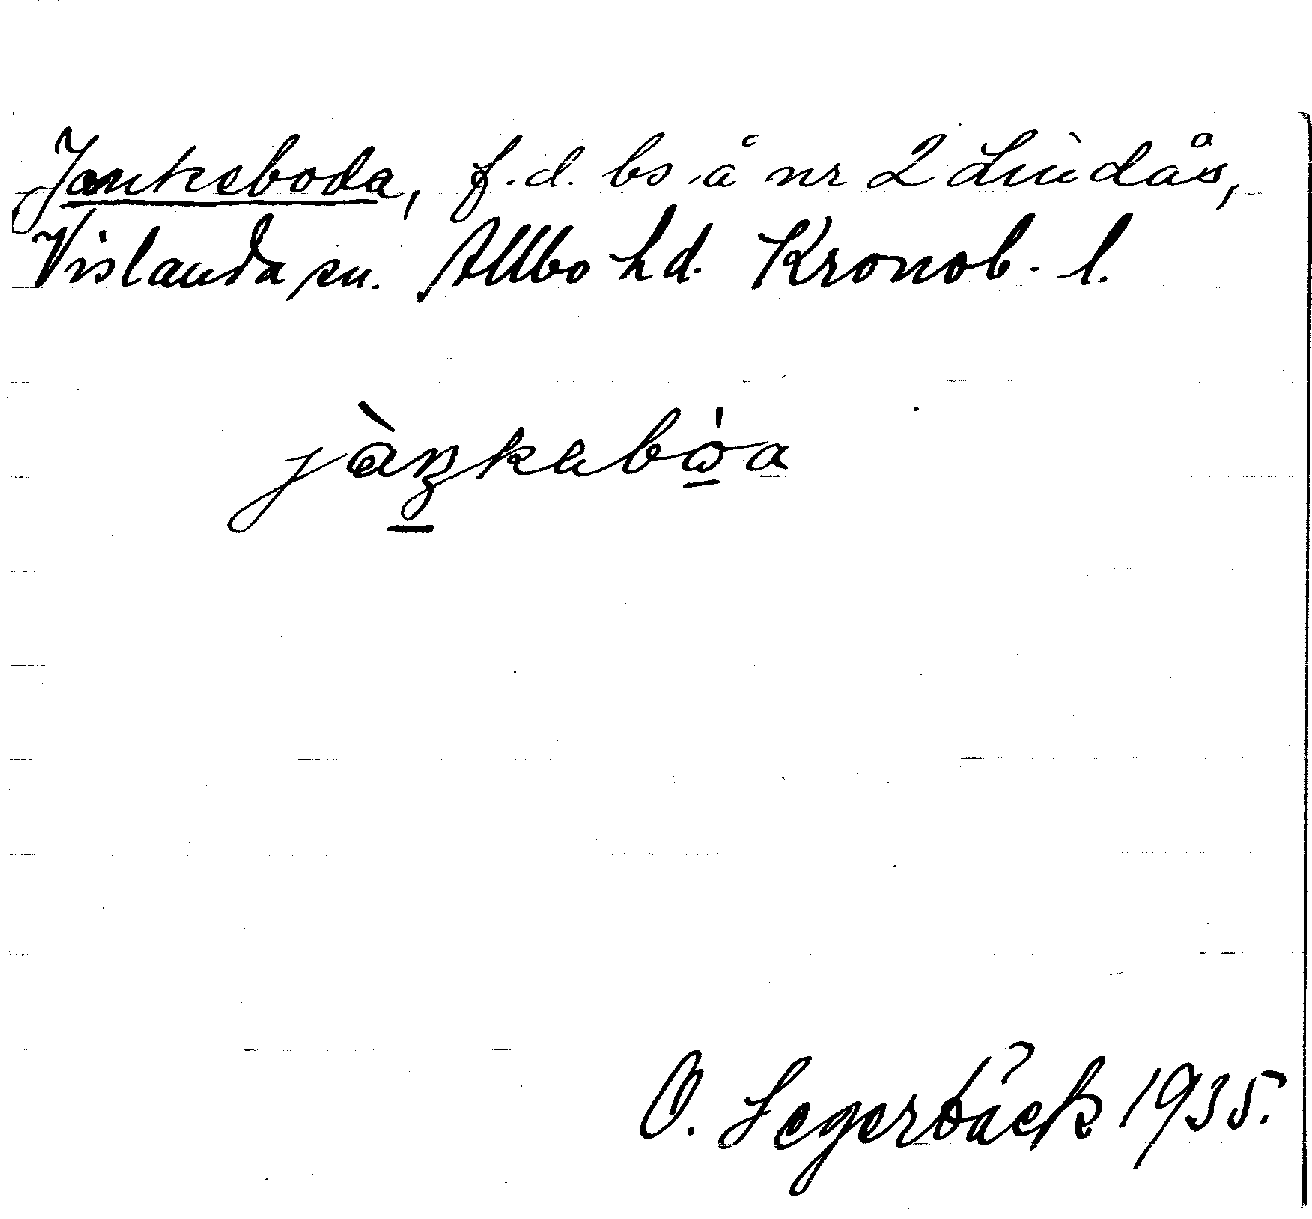 Jankeboda, f.d. bs å nr 2 Lindås,
Vislanda sn. Allbo hd. Kronob. l.
jàŋkabo̱a
O. Segerbäck 1935.